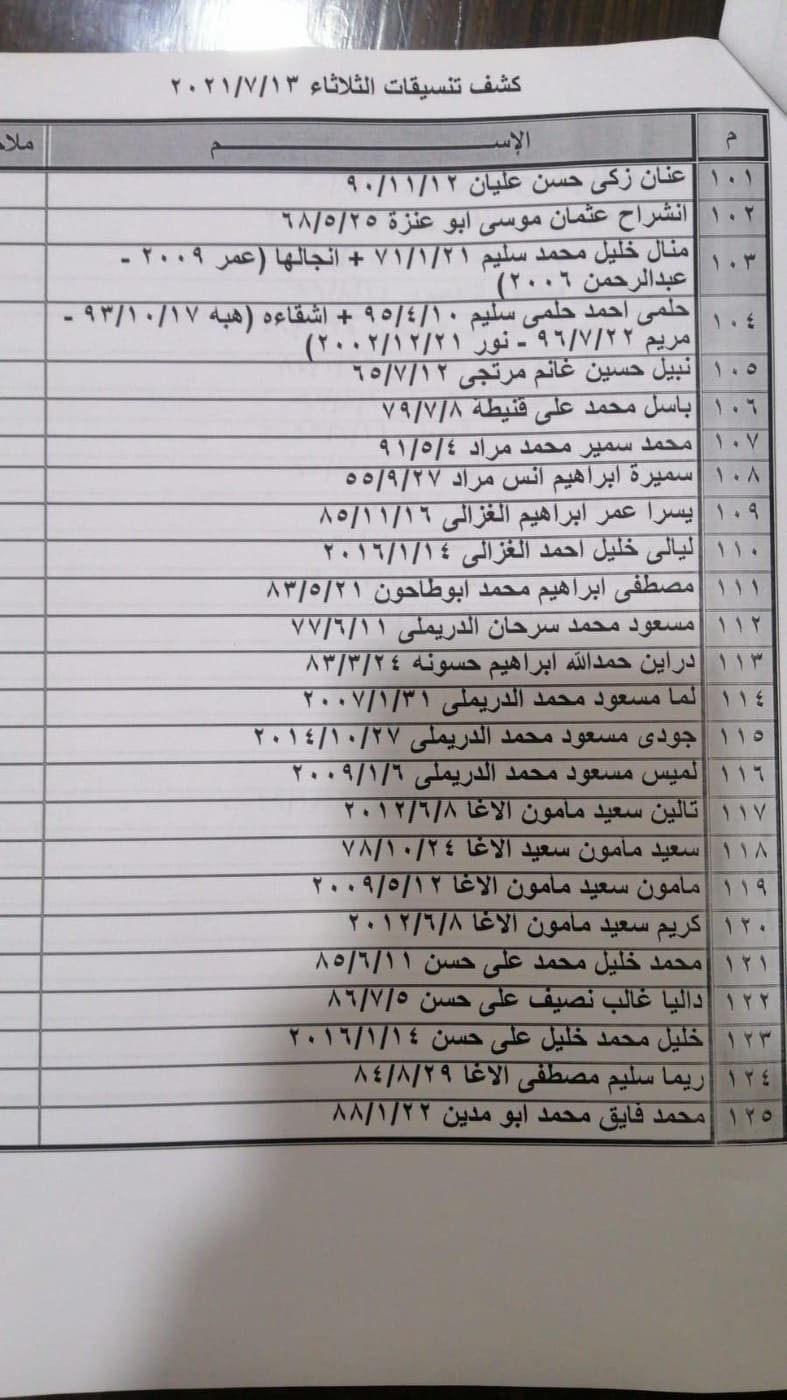 كشف تنسيقات الثلاثاء ٢٠٢١/٧/١٣
م الإســـــــــم ملاح
١٠١ عنان زكى حسن عليان ٩٠/١١/١٢
١٠٢ انشراح عثمان موسى ابو عنزة ٦٨/٥/٢٥
١٠٣ منال خليل محمد سليم ٧١/١/٢١ + انجالها (عمر ٢٠٠٩ -
عبدالرحمن ٢٠٠٦)
١٠٤ حلمى احمد حلمى سليم ٩٥/٤/١٠ + اشقاءه (هبه ٩٣/١٠/١٧ -
مريم ٩٦/٧/٢٢ - نور ٢٠٠٢/١٢/٢١)
١٠٥ نبيل حسين غانم مرتجى ٦٥/٧/١٢
١٠٦ باسل محمد على قنيطة ٧٩/٧/٨
١٠٧ محمد سمير محمد مراد ٩١/٥/٤
١٠٨ سميرة ابراهيم انس مراد ٥٥/٩/٢٧
١٠٩ يسرا عمر ابراهيم الغزالى ٨٥/١١/١٦
١١٠ ليالى خليل احمد الغزالى ٢٠١٦/١/١٤
١١١ مصطفى ابراهيم محمد ابوطاحون ٨٣/٥/٢١
١١٢ مسعود محمد سرحان الدريملى ٧٧/٦/١١
١١٣ دراين حمدالله ابراهيم حسونه ٨٣/٣/٢٤
١١٤ لما مسعود محمد الدريملى ٢٠٠٧/١/٣١
١١٥ جودى مسعود محمد الدريملى ٢٠١٤/١٠/٢٧
١١٦ لميس مسعود محمد الدريملى ٢٠٠٩/١/٦
١١٧ تالين سعيد مامون الاغا ٢٠١٢/٦/٨
١١٨ سعيد مامون سعيد الاغا ٧٨/١٠/٢٤
١١٩ مامون سعيد مامون الاغا ٢٠٠٩/٥/١٢
١٢٠ كريم سعيد مامون الاغا ٢٠١٢/٦/٨
١٢١ محمد خليل محمد على حسن ٨٥/٦/١١
١٢٢ داليا غالب نصيف على حسن ٨٦/٧/٥
١٢٣ خليل محمد خليل على حسن ٢٠١٦/١/١٤
١٢٤ ريما سليم مصطفى الاغا ٨٤/٨/٢٩
١٢٥ محمد فايق محمد ابو مدين ٨٨/١/٢٢